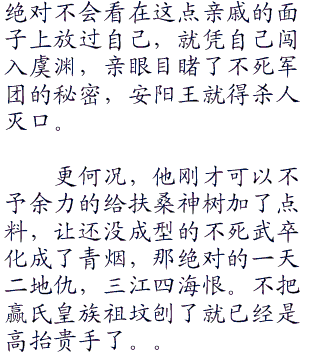 绝对不会看在这点亲戚的面
子上放过自己，就凭自己闯
入虞渊，亲眼目睹了不死军
团的秘密，安阳王就得杀人
灭口。
更何况，他刚才可以不
予余力的给扶桑神树加了点
料，让还没成型的不死武卒
化成了青烟，那绝对的一天
二地仇，三江四海恨。不把
赢氏皇族祖坟刨了就已经是
高抬贵手了。。